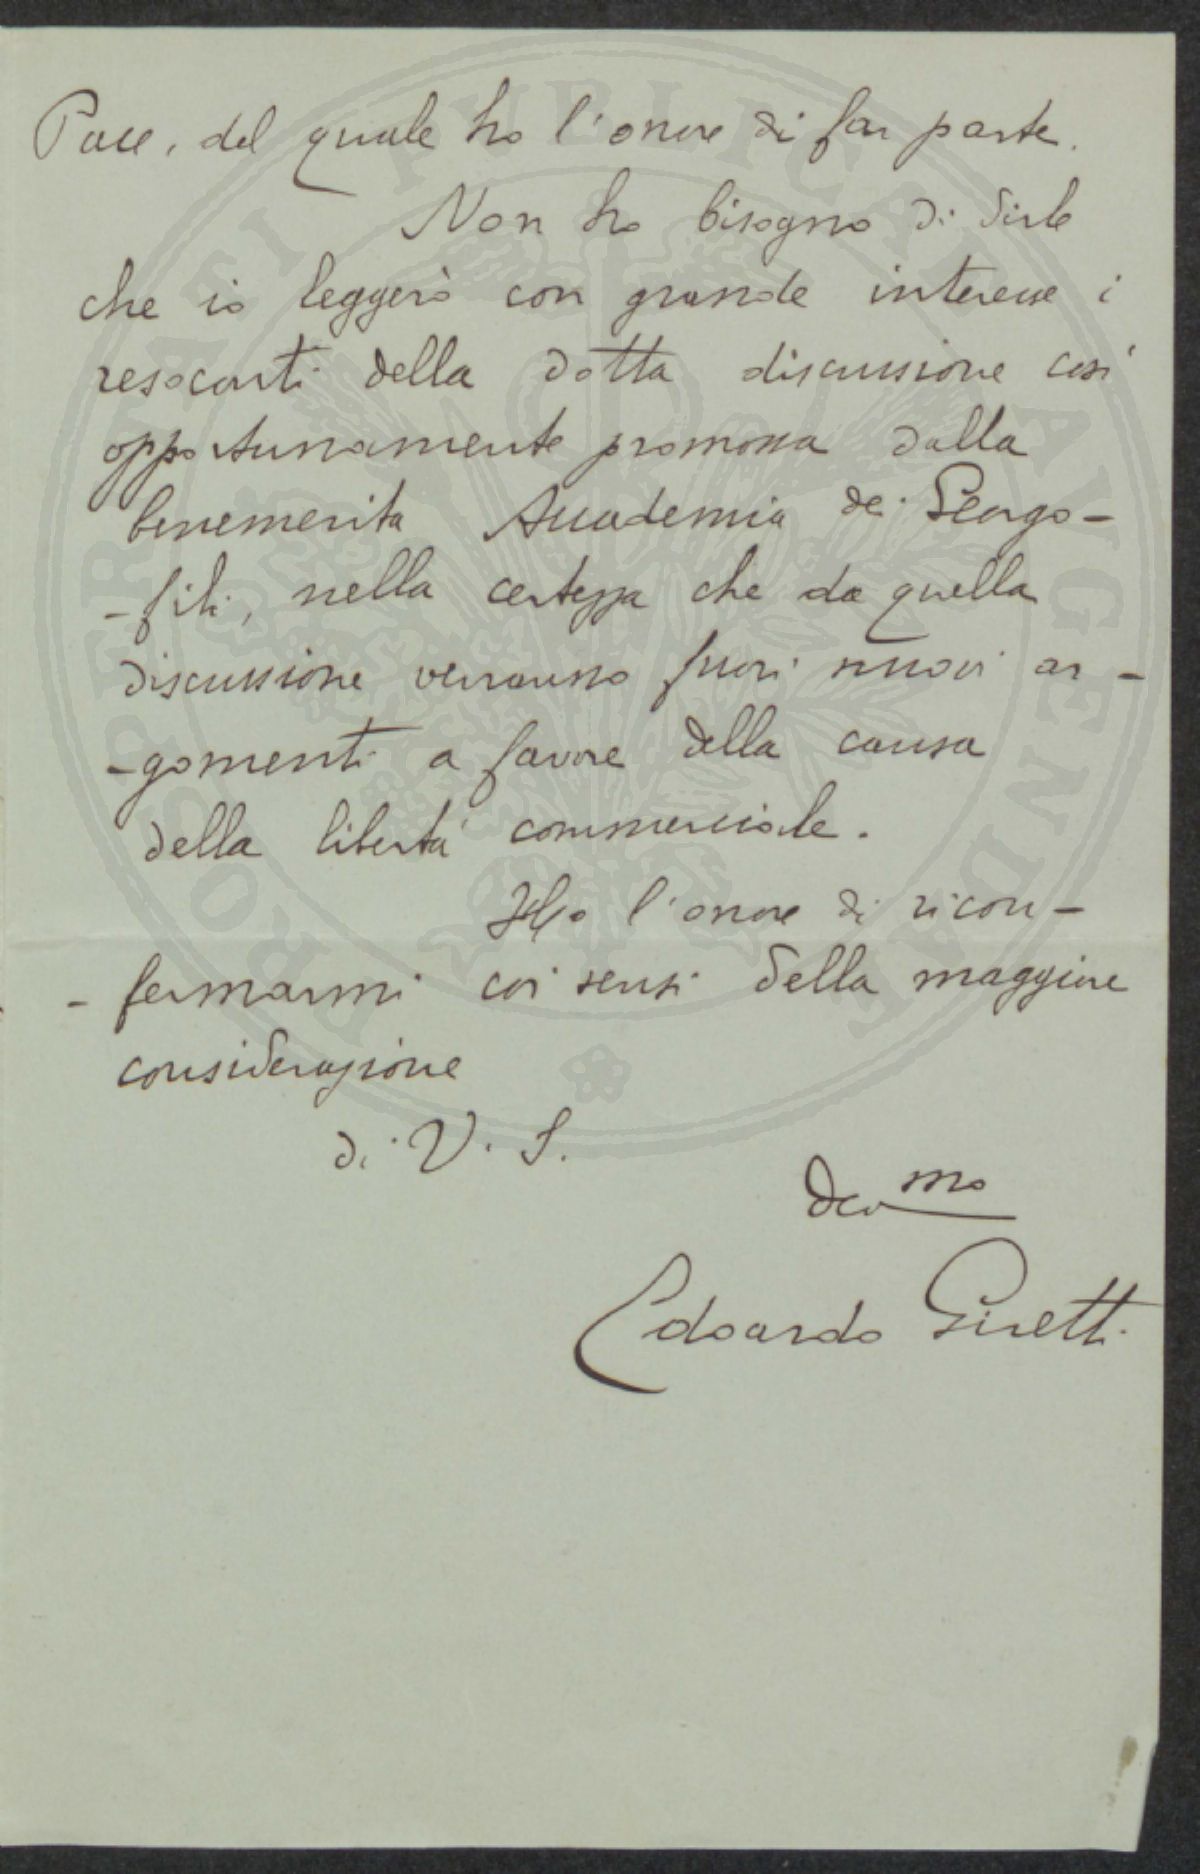 Pace, del quale ho l'onore di far parte.
Non ho bisogno di dirle
che io leggerò con grande interesse i
resoconti della dotta discussione così
opportunamente promossa dalla
benemerita Accademia dei Geogo-
-fili, nella certezza che da quella
discussione verranno fuori nuovi ar-
-gomenti a favore della causa
della libertà commerciale.
Ho l'onore di ricon-
-fermarmi coi sensi della maggiore
considerazione
di V. S.
Dev mo
Edoardo Giretti
PROSPERITATI PVBLICAE AVGENDAE